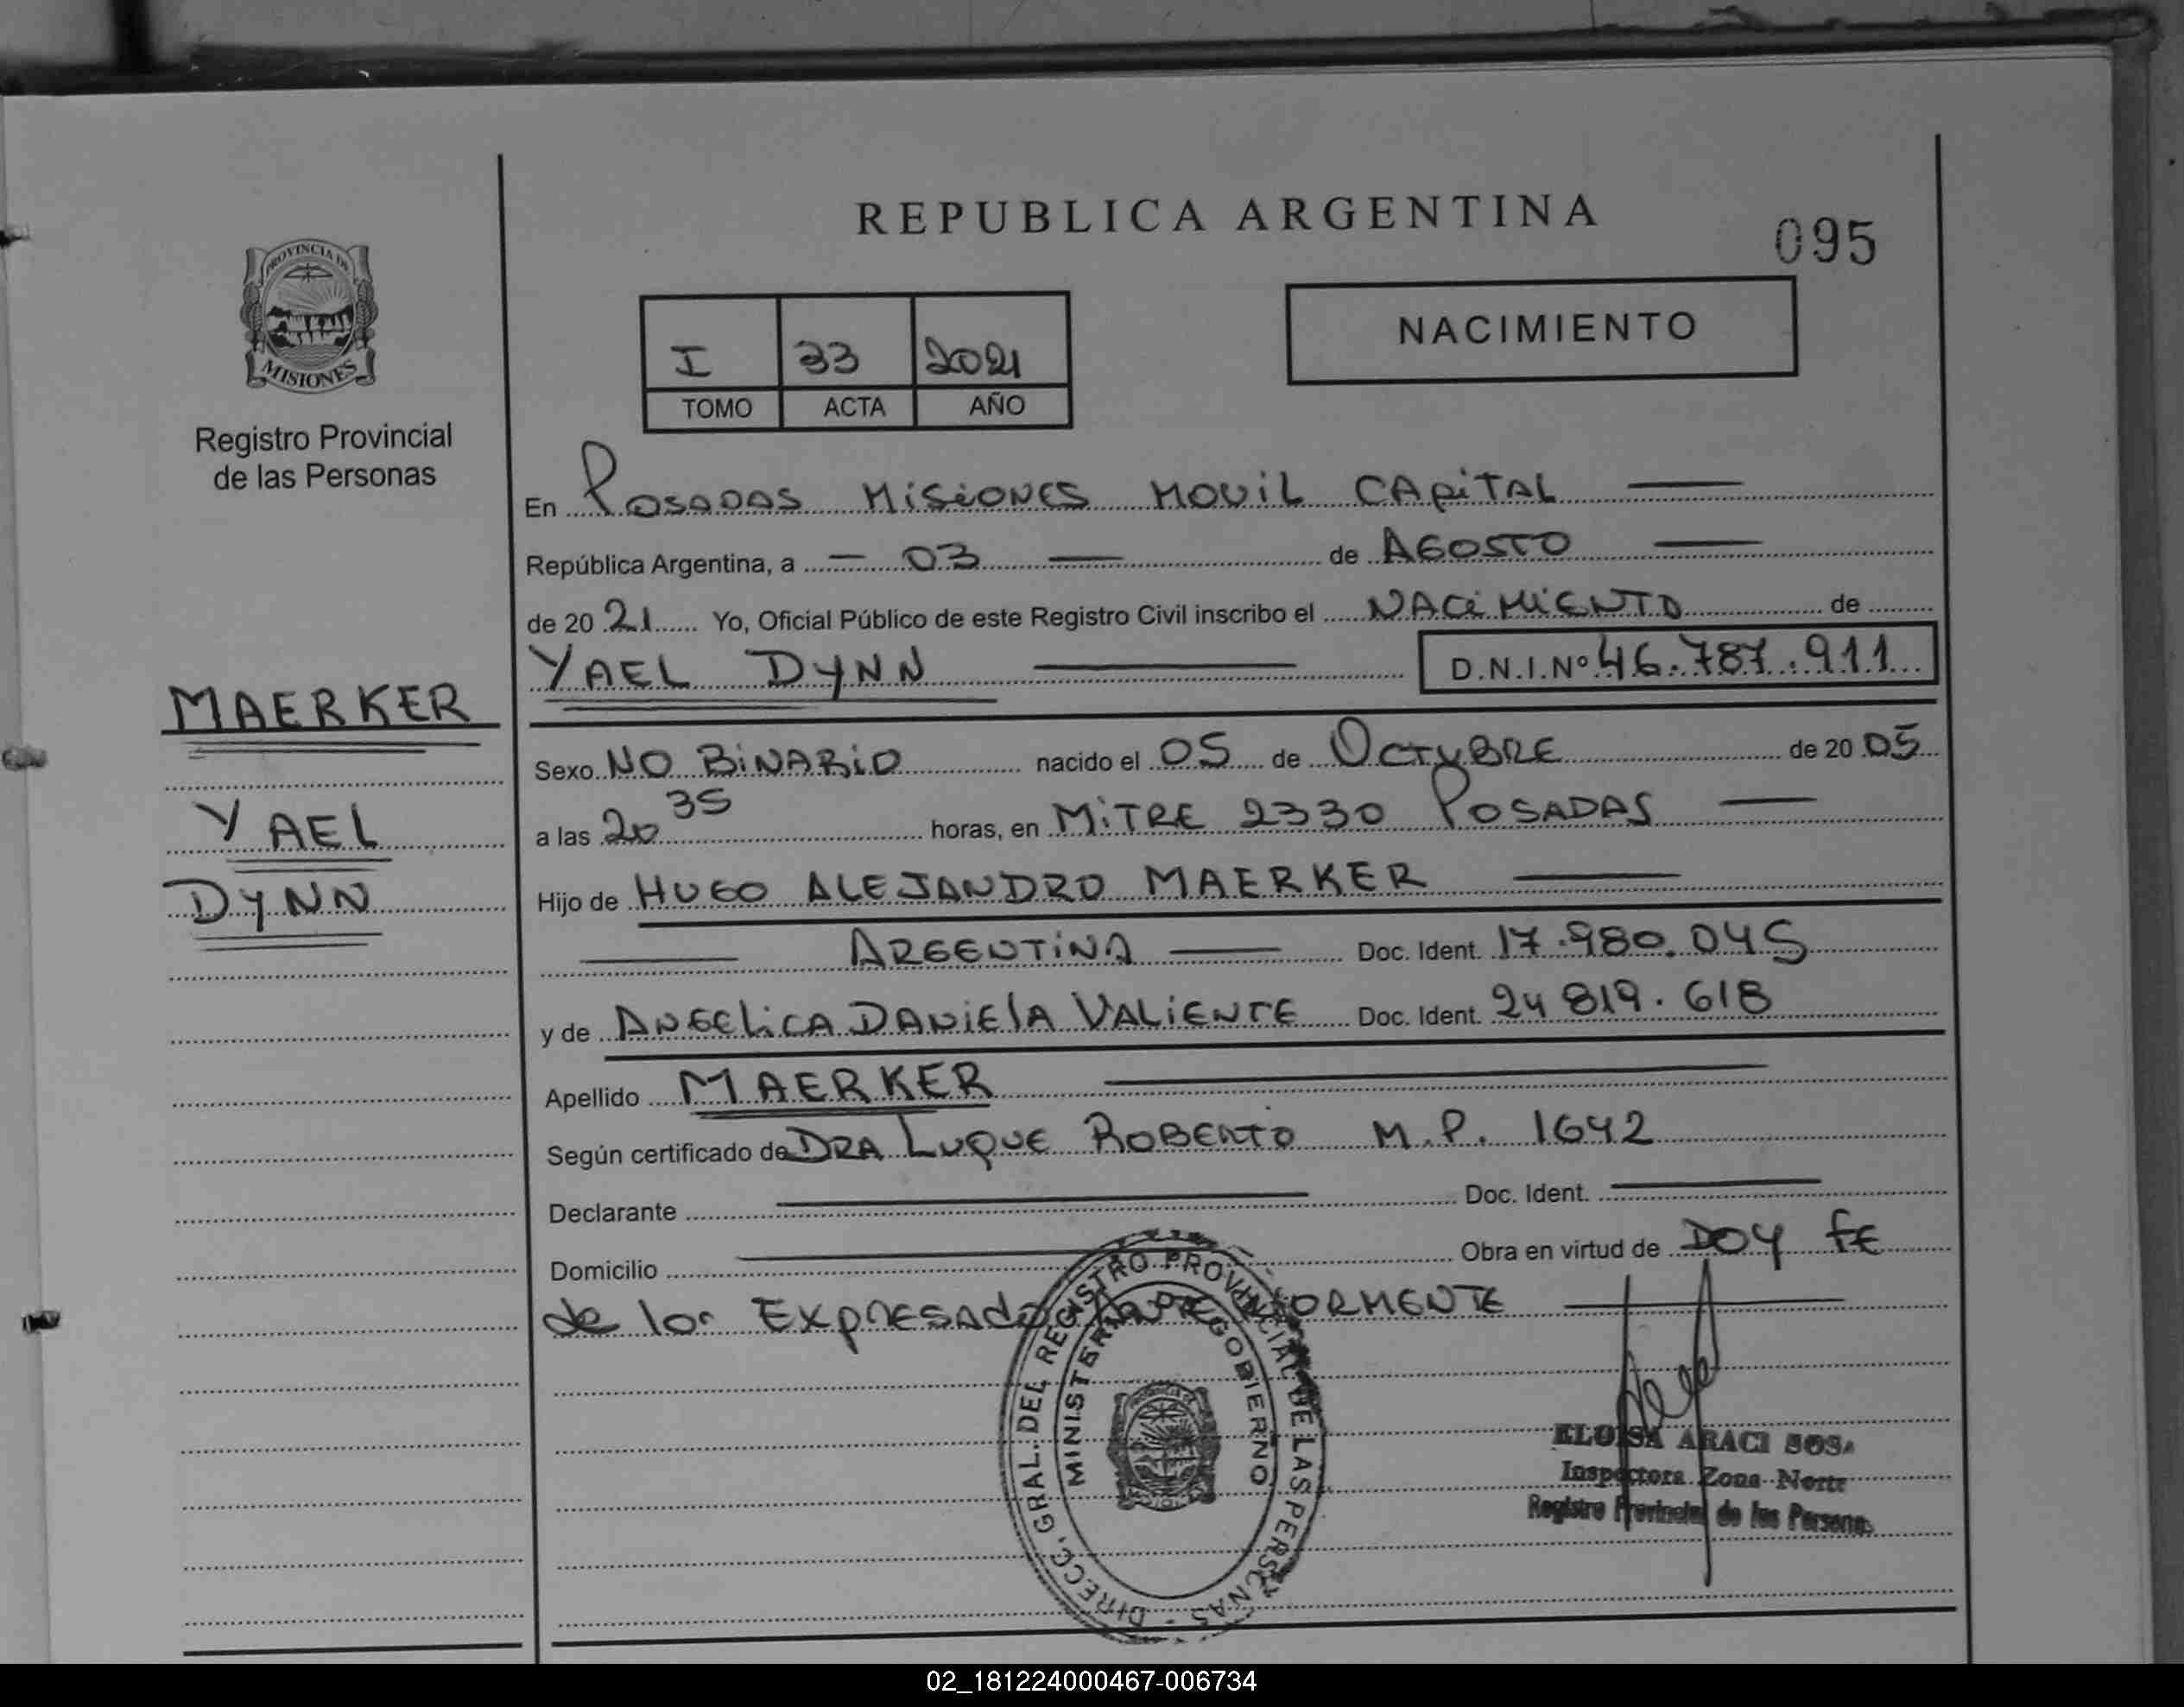 REPUBLICA ARGENTINA
095
PROVINCIA DE MISIONES
Registro Provincial
de las Personas
I 33 2021
TOMO ACTA AÑO
NACIMIENTO
En Posadas Misiones Movil Capital
República Argentina, a 03 de Agosto
de 2021 Yo, Oficial Público de este Registro Civil inscribo el NACiMiENTO de
YAEL DYNN D.N.I.Nº 46.787.911
MAERKER
YAEL
DYNN
Sexo NO BiNARiO nacido el 05 de OCTUBRE de 2005
a las 20 35 horas, en MiTRE 2330 POSADAS
Hijo de HUGO ALEJANDRO MAERKER
ARGENTiNA Doc. Ident. 17.980.045
y de ANGELiCA DANiElA VALiENTE Doc. Ident. 24 819.618
Apellido MAERKER
Según certificado de DRA LUQUE ROBERTO M.P. 1642
Declarante Doc. Ident.
Domicilio Obra en virtud de DOY FE
de lo EXPRESADO ANTERIORMENTE
DIRECC. GRAL. DEL REGISTRO PROVINCIAL DE LAS PERSONAS
MINISTERIO DE GOBIERNO
ELOISA ARACI SOSA
Inspectora Zona Norte
Registro Provincial de las Personas
02_181224000467-006734